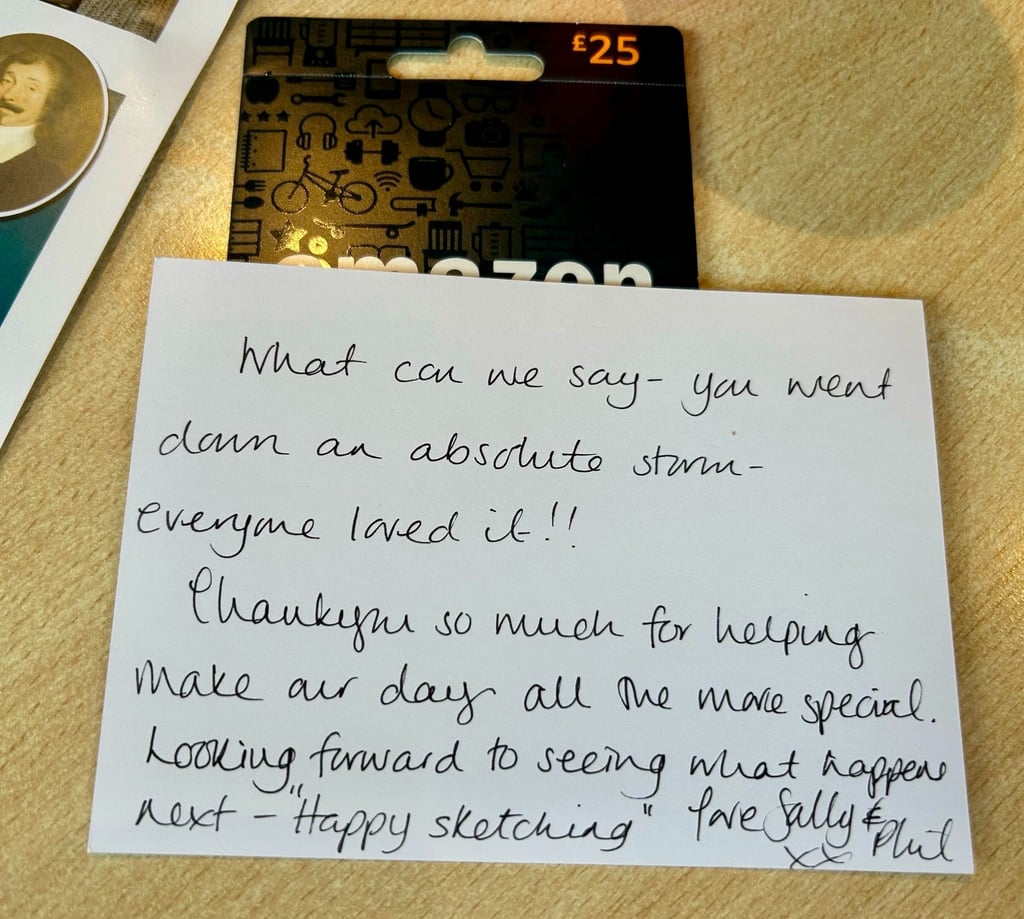 £25
amazon
What can we say - you went
down an absolute storm -
everyone loved it!!
Thankyou so much for helping
make our day all the more special.
Looking forward to seeing what happens
next - "Happy sketching" Love Sally &
xx Phil